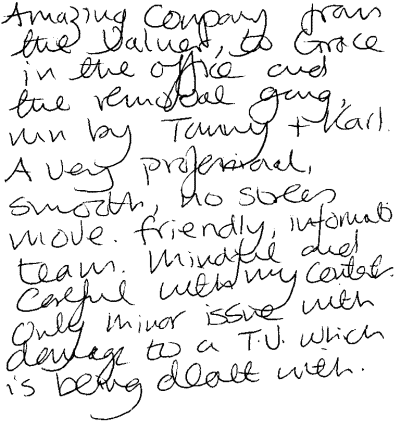 Amazing Company from
the Valuers, to Grace
in the office and
the removal gang,
run by Tammy + Karl.
A very professional,
smooth, no stress
move. friendly, informati
team. Mindful and
Careful with my contents.
Only minor issue with
damage to a T.V. which
is being dealt with.